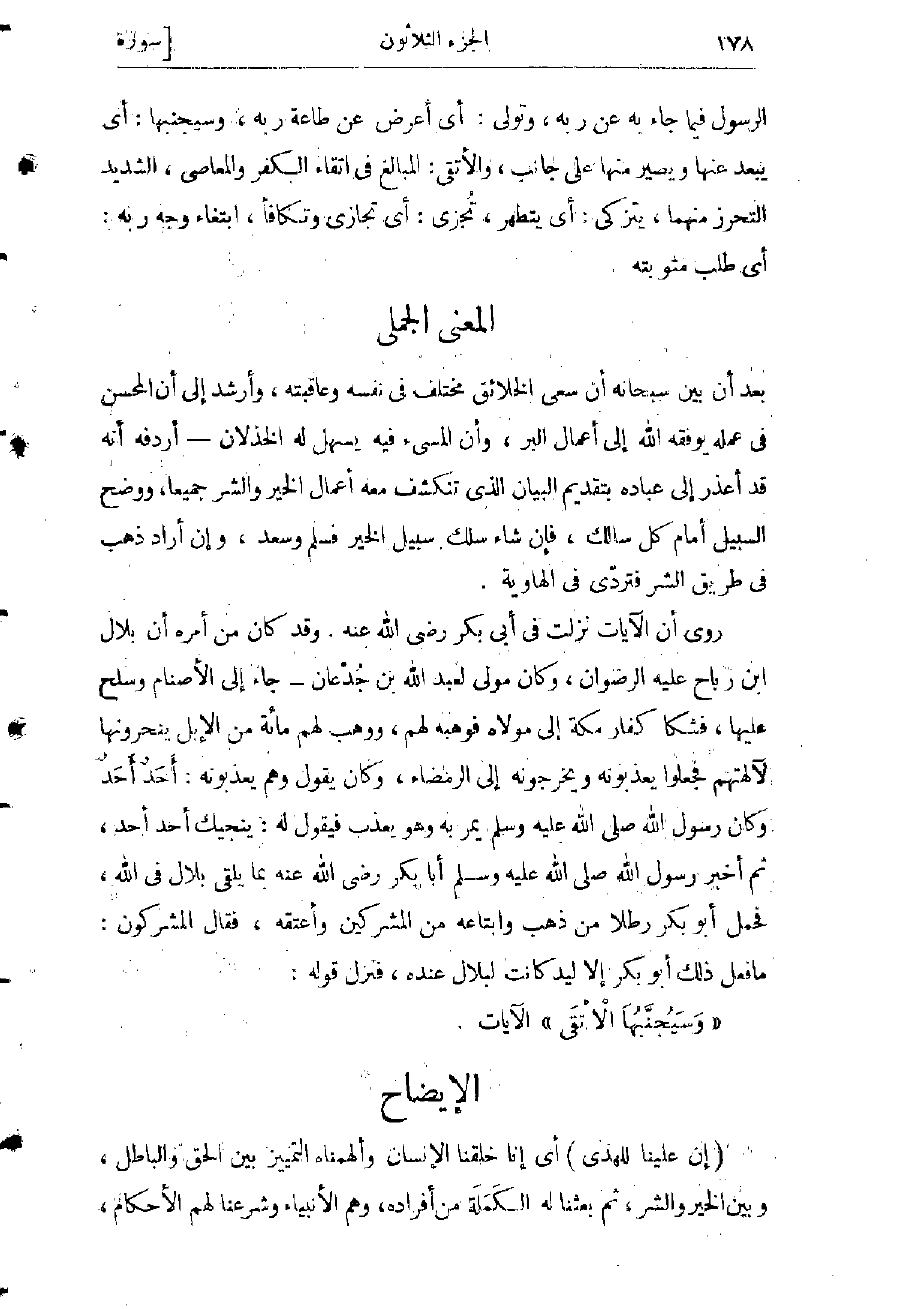 ١٧٨ الجزء الثلاثون [سورة
الرسول فيما جاء به عن ربه ، وتولى : أى أعرض عن طاعة ربه ، وسيجنبها : أى
يبعد عنها ويصير منها على جانب ، والأتقى : المبالغ فى اتقاء الكفر والمعاصى ، الشديد
التحرز منهما ، يتزكى : أى يتطهر ، تُجزى : أى تجازى وتكافأ ، ابتغاء وجه ربه :
أى طلب مثوبته .
المعنى الجملى
بعد أن بين سبحانه أن سعى الخلائق مختلف فى نفسه وعاقبته ، وأرشد إلى أن المحسن
فى عمله يوفقه الله إلى أعمال البر ، وأن المسىء فيه يسهل له الخذلان — أردفه أنه
قد أعذر إلى عباده بتقديم البيان الذى تنكشف معه أعمال الخير والشر جميعا، ووضح
السبيل أمام كل سالك ، فإن شاء سلك سبيل الخير فسلم وسعد ، وإن أراد ذهب
فى طريق الشر فتردّى فى الهاوية .
روى أن الآيات نزلت فى أبى بكر رضى الله عنه . وقد كان من أمره أن بلال
ابن رباح عليه الرضوان ، وكان مولى لعبد الله بن جُدْعان – جاء إلى الأصنام وسلح
عليها ، فشكا كفار مكة إلى مولاه فوهبه لهم ، ووهب لهم مائة من الإبل ينحرونها
لآلهتهم فجعلوا يعذبونه ويخرجونه إلى الرمضاء ، وكان يقول وهم يعذبونه : أَحَدٌ أَحَدٌ
وكان رسول الله صلى الله عليه وسلم يمر به وهو يعذب فيقول له : ينجيك أحد أحد ،
ثم أخبر رسول الله صلى الله عليه وسلم أبا بكر رضى الله عنه بما يلقى بلال فى الله ،
فحمل أبو بكر رطلا من ذهب وابتاعه من المشركين وأعتقه ، فقال المشركون :
مافعل ذلك أبو بكر إلا ليد كانت لبلال عنده ، فنزل قوله :
« وَسَيُجَنَّبُهَا الْأَتْقَى » الآيات .
الإيضاح
( إن علينا للهدى ) أى إنا خلقنا الإنسان وألهمناه التمييز بين الحق والباطل ،
وبين الخير والشر ، ثم بعثنا له الكَمَلَة من أفراده، وهم الأنبياء وشرعنا لهم الأحكام ،